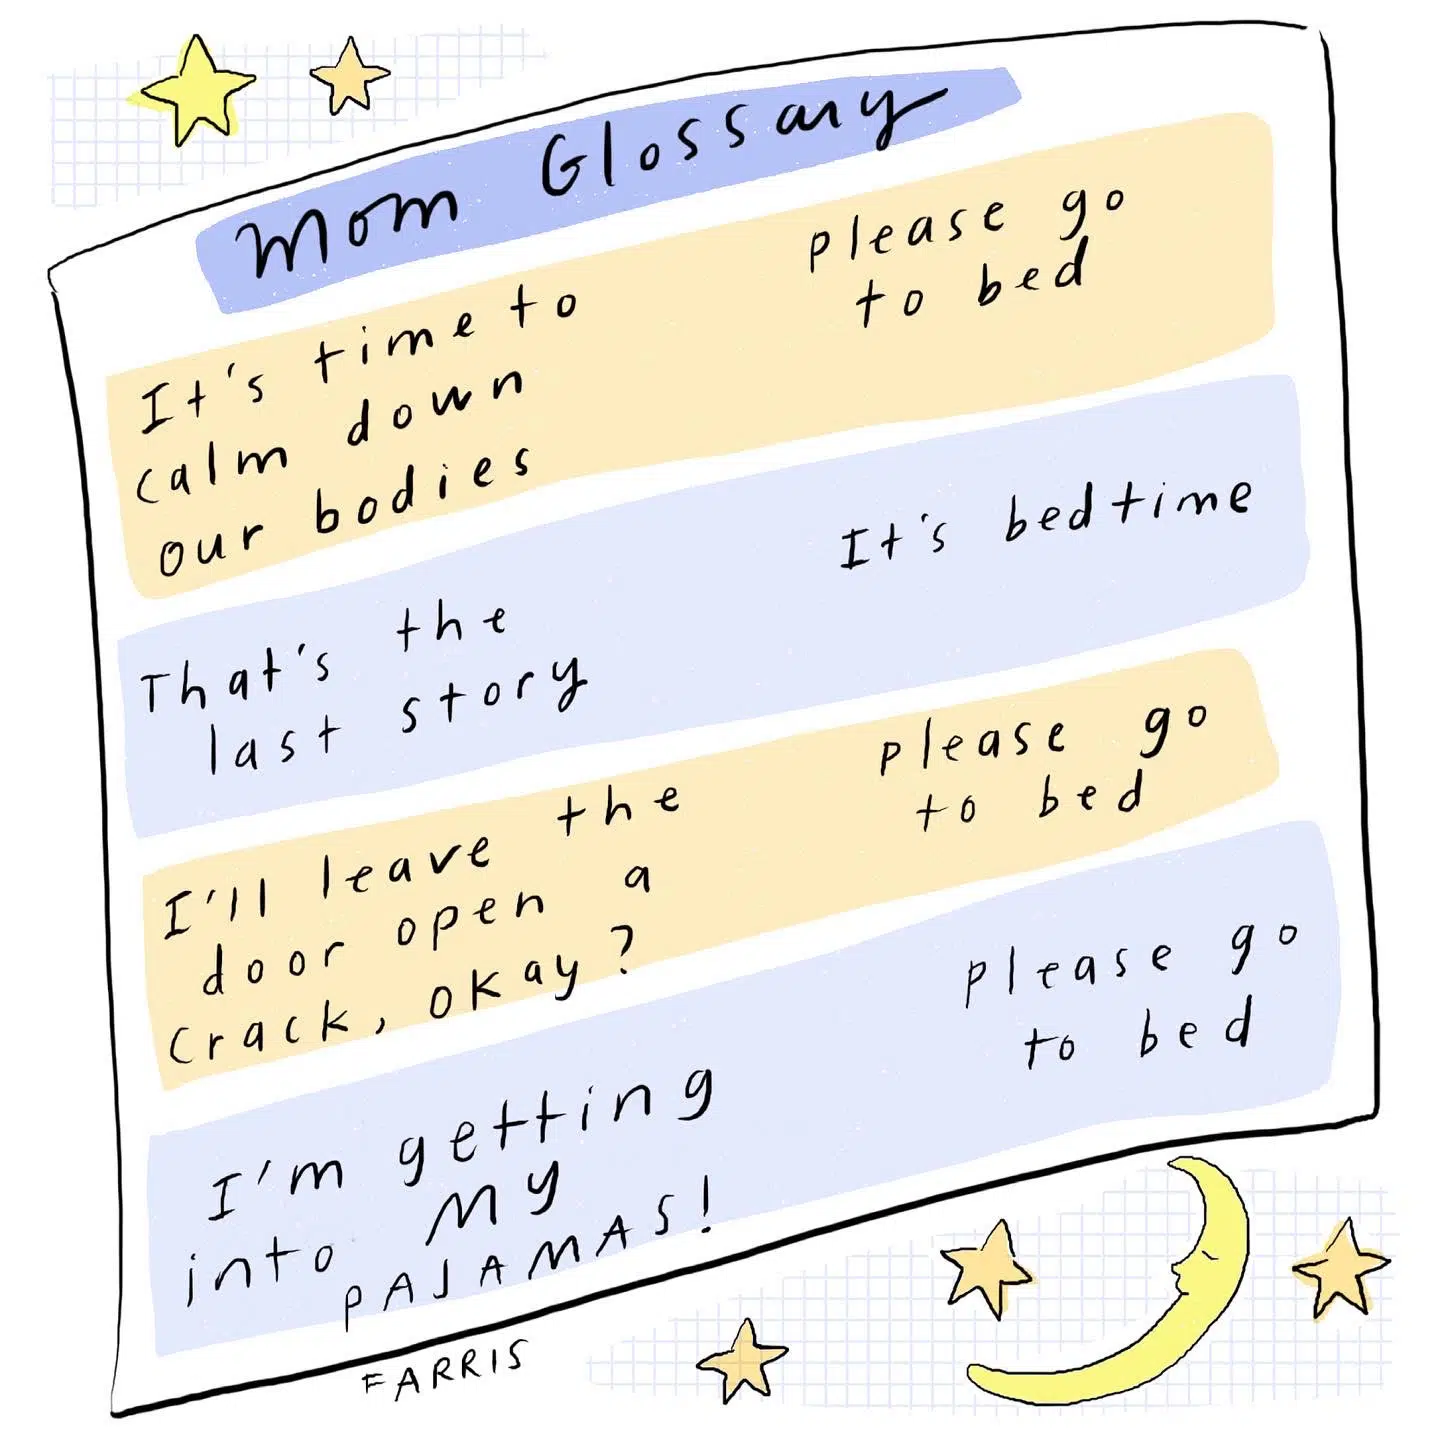 Mom Glossary
It's time to
calm down
our bodies
please go
to bed
That's the
last story
It's bedtime
I'll leave the
door open a
crack, okay?
please go
to bed
I'm getting
into MY
PAJAMAS!
please go
to bed
FARRIS